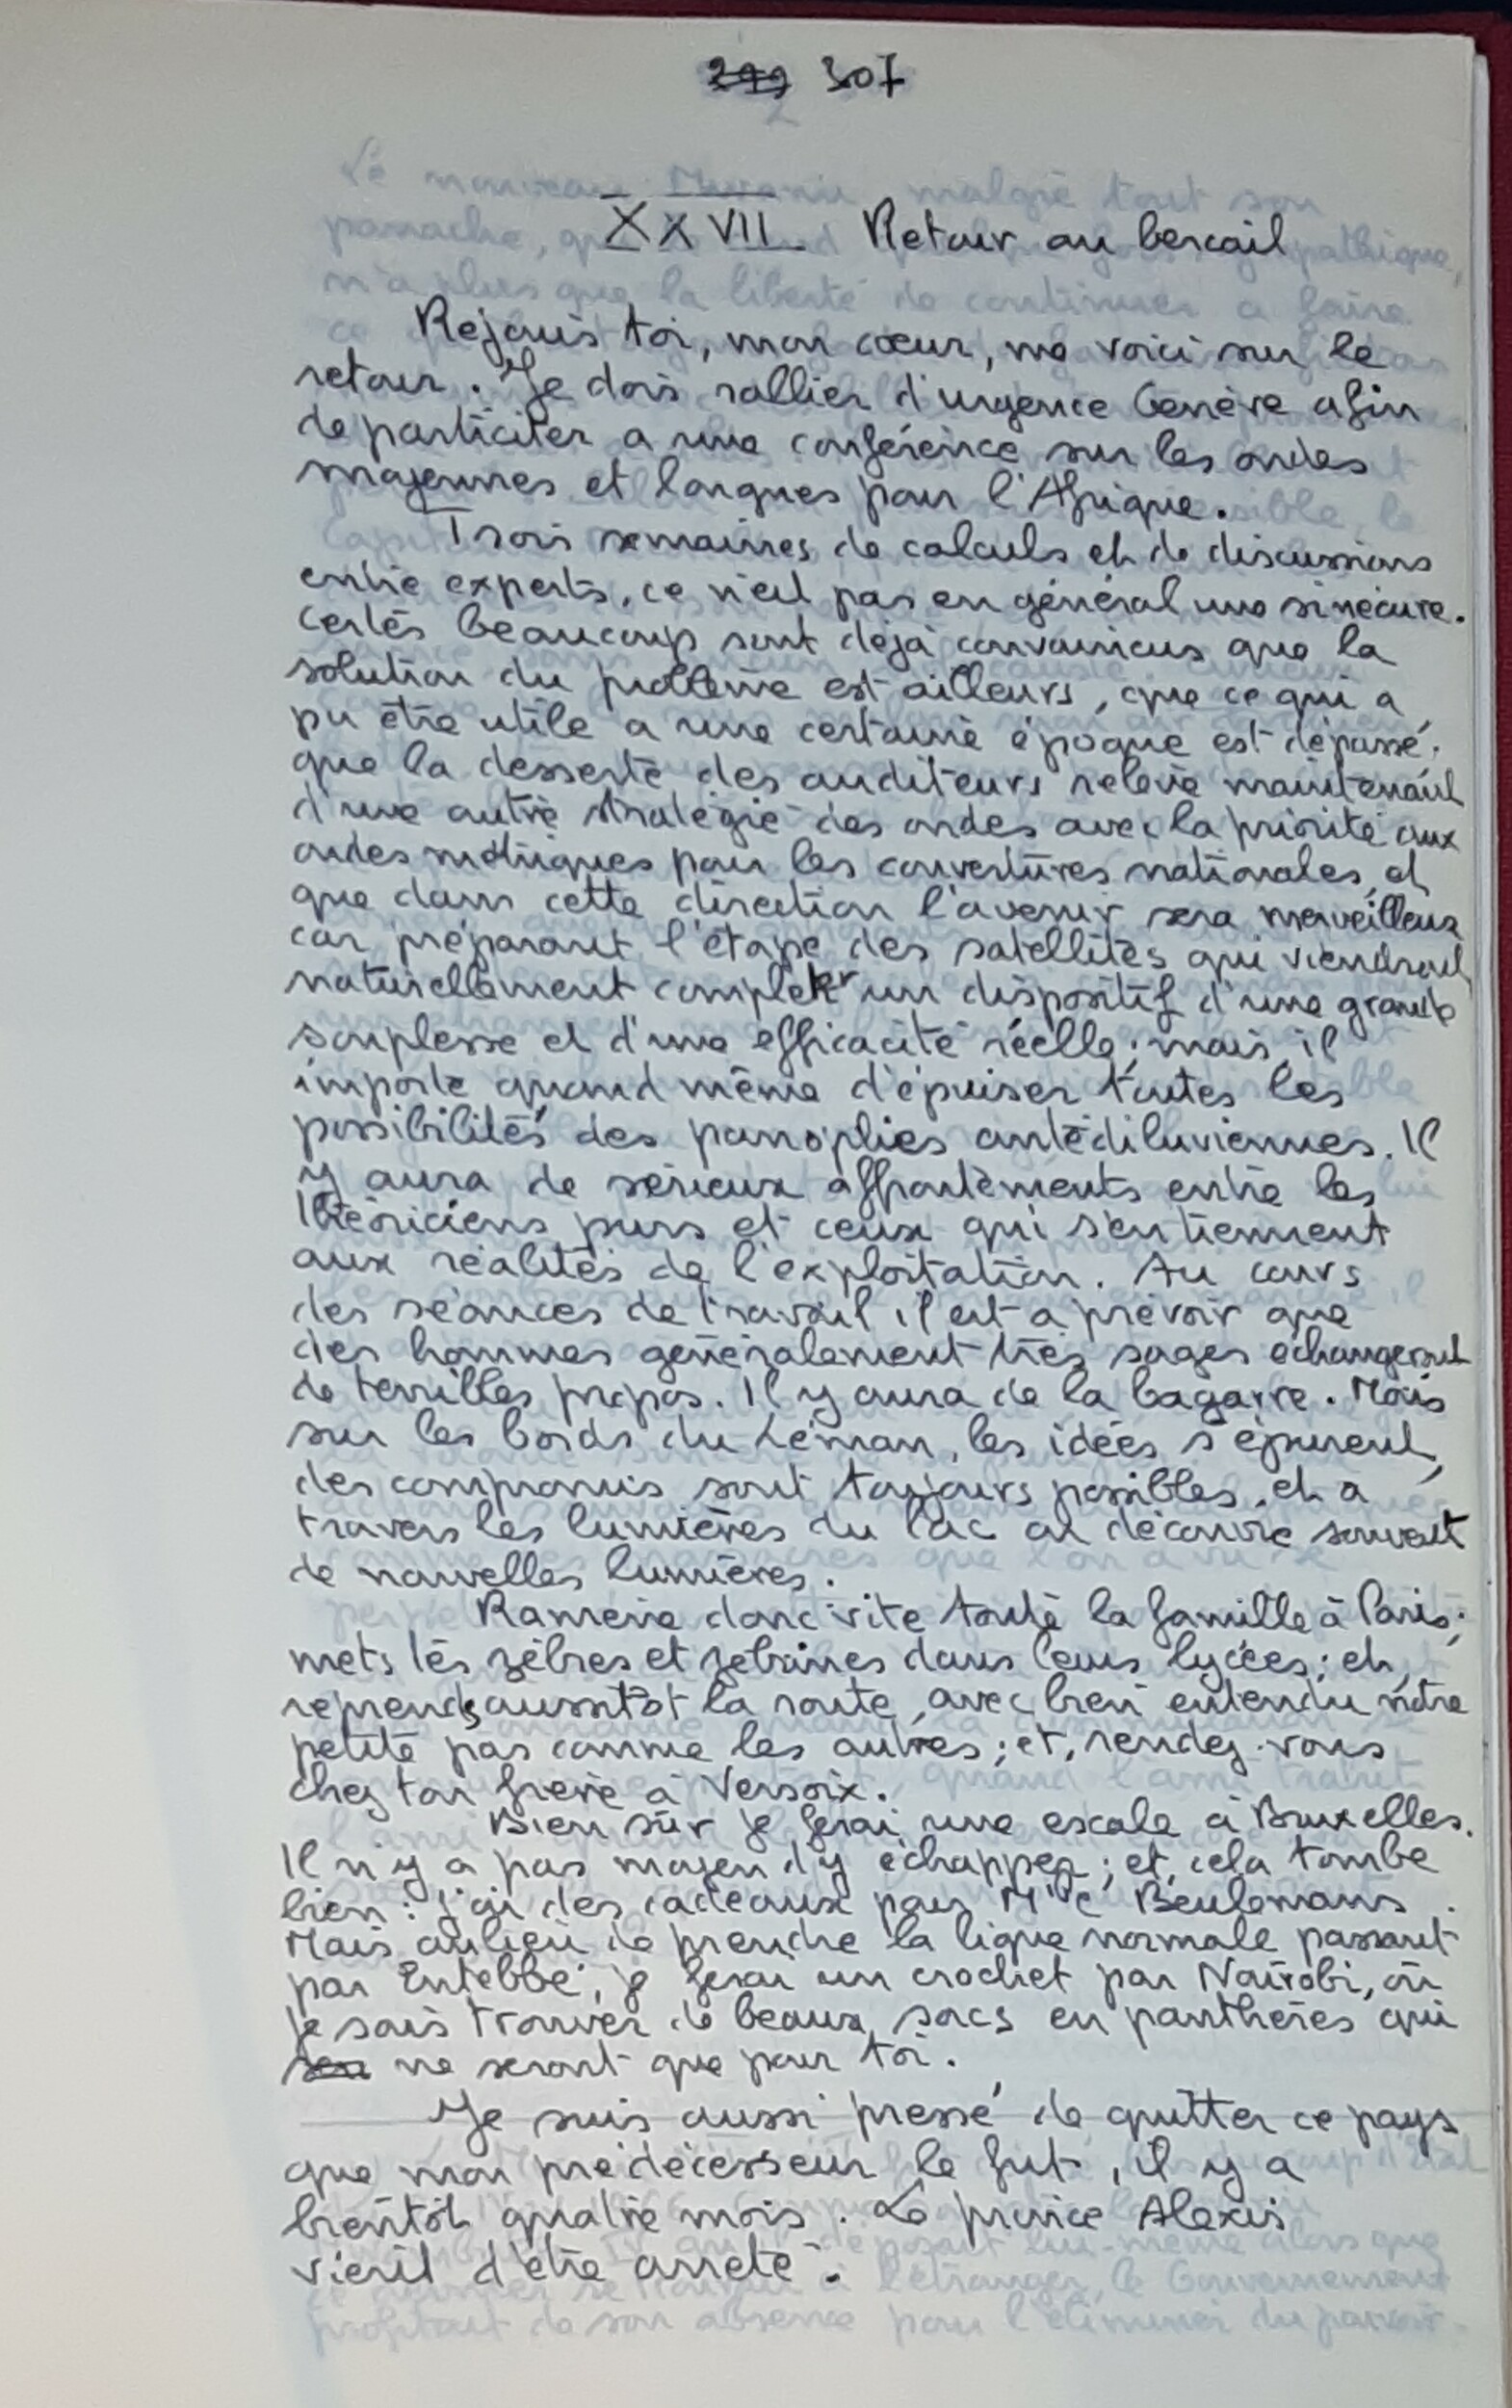 307
XXVII Retour au bercail
Rejouis toi, mon cœur, me voici sur le
retour. Je dois rallier d'urgence Genève afin
de participer a une conférence sur les ondes
moyennes et longues pour l'Afrique.
Trois semaines de calculs et de discussions
entre experts, ce n'est pas en général une sinécure.
Certes beaucoup sont déjà convaincus que la
solution du problème est ailleurs, que ce qui a
pu être utile a une certaine époque est dépassé,
que la desserte des auditeurs relève maintenant
d'une autre stratégie des ondes avec la priorité aux
ondes métriques pour les couvertures nationales, et
que dans cette direction l'avenir sera merveilleux
car préparant l'étape des satellites qui viendront
naturellement compléter un dispositif d'une grande
souplesse et d'une efficacité réelle; mais, il
importe quand même d'épuiser toutes les
possibilités des panoplies antédiluviennes. Il
y aura de sérieux affrontements entre les
théoriciens purs et ceux qui s'en tiennent
aux réalités de l'exploitation. Au cours
des séances de travail il est a prévoir que
des hommes généralement très sages échangeront
de terribles propos. Il y aura de la bagarre. Mais
sur les bords du Léman, les idées s'épurent,
des compromis sont toujours possibles, et a
travers les lumières du lac on découvre souvent
de nouvelles lumières.
Ramène donc vite toute la famille à Paris;
mets les zèbres et zébrines dans leurs lycées; et,
reprends aussitôt la route, avec bien entendu notre
petite pas comme les autres; et, rendez-vous
chez ton frère à Versoix.
Bien sûr je ferai une escale à Bruxelles.
Il n'y a pas moyen d'y échapper; et, cela tombe
bien: j'ai des cadeaux pour Mlle Beulemans.
Mais au lieu de prendre la ligne normale passant
par Entebbé, je ferai un crochet par Naïrobi, où
je sais trouver de beaux sacs en panthères qui
ne seront que pour toi.
Je suis aussi pressé de quitter ce pays
que mon prédécesseur le fut, il y a
bientôt quatre mois. Le prince Alexis
vient d'être arrêté.